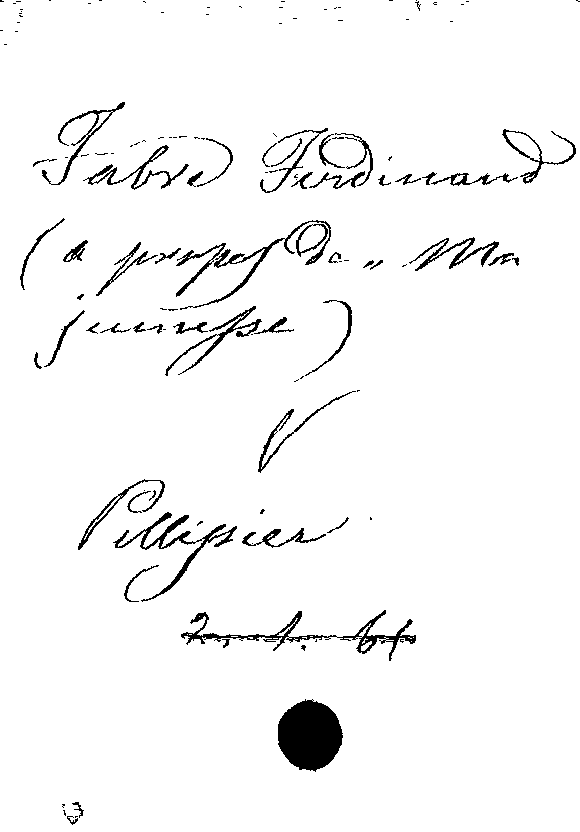 Fabre Ferdinand
(à propos de „ Ma
jeunesse)
V
Pellissier
2. 1. 61